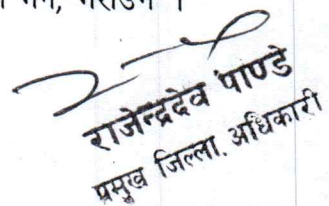 गराउने ।
राजेन्द्रदेव पाण्डे
प्रमुख जिल्ला. अधिकारी